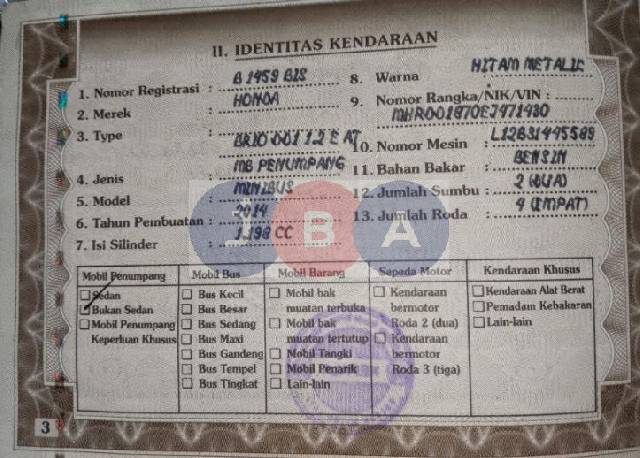 II. IDENTITAS KENDARAAN
1. Nomor Registrasi : B 1959 BIS
2. Merek : HONDA
3. Type :
4. Jenis : MB PENUMPANG
5. Model : MINIBUS
6. Tahun Pembuatan : 2014
7. Isi Silinder : 1.198 CC
8. Warna HITAM METALIC
9. Nomor Rangka/NIK/VIN :
10. Nomor Mesin :
11. Bahan Bakar : BENSIN
12. Jumlah Sumbu : 2 (DUA)
13. Jumlah Roda : 4 (EMPAT)
BA
Mobil Penumpang
Sedan
Bukan Sedan
Mobil Penumpang
Keperluan Khusus
Mobil Bus
Bus Kecil
Bus Besar
Bus Sedang
Bus Maxi
Bus Gandeng
Bus Tempel
Bus Tingkat
Mobil Barang
Mobil bak
muatan terbuka
Mobil bak
muatan tertutup
Mobil Tangki
Mobil Penarik
Lain-lain
Sepeda Motor
Kendaraan
bermotor
Roda 2 (dua)
Kendaraan
bermotor
Roda 3 (tiga)
Kendaraan Khusus
Kendaraan Alat Berat
Pemadam Kebakaran
Lain-lain
3